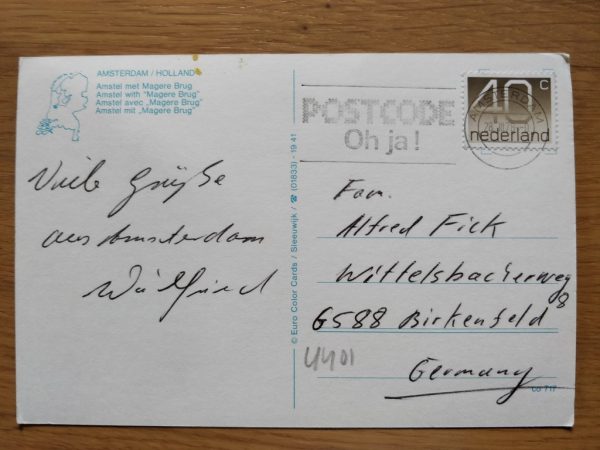 AMSTERDAM / HOLLAND
Amstel met Magere Brug
Amstel with "Magere Brug"
Amstel avec „Magere Brug"
Amstel mit „Magere Brug"
Viele Grüße
aus Amsterdam
Wilfried
© Euro Color Cards / Sleeuwijk / ☎ (01833) - 19 41
POSTCODE
Oh ja!
AMSTERDAM
40 c
nederland
Fam.
Alfred Fick
Wittelsbacherweg
8
6588 Birkenfeld
Germany
4401